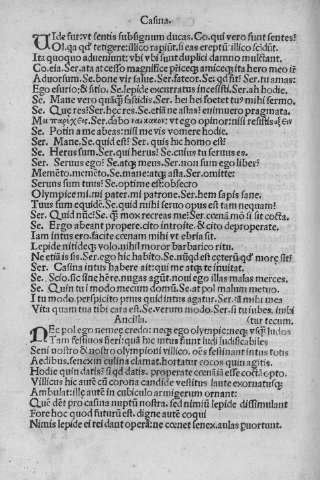 Casina.
VIde fur: vt sentis sub signum ducas. Co. qui vero sunt sentes?
Ol. qa qd' tetigere: illico rapiūt. si eas ereptū: illico scidūt.
Ita quoquo adueniunt: vbi vbi sunt duplici damno mulctant.
Co. eia. Ser. ata at cesso magnifice pr̄iceqʒ amiceqʒ ita hero meo ire
Aduorsum. Se. bone vir salue. Ser. fateor. Se. qd' fit? Ser. tu amas:
Ego esurio: & sitio. Se. lepide excurratus incessisti. Ser. ah hodie.
Se. Mane vero quāqʒ fastidis. Ser. hei hei foetet tu? mihi sermo.
Se. Que res? Ser. hec res. Se. etiā ne astas? enimuero pragmata.
Se. Potin a me abeas: nisi me vis vomere hodie.
Ser. Mane. Se. quid est? Ser. quis hic homo est?
Se. Herus sum. Ser. qui herus? Se. cuius tu seruus es.
Ser. Seruus ego? Se. atqʒ meus. Ser. non sum ego liber?
Memēto. memēto. Se. mane: atqʒ asta. Ser. omitte:
Seruus sum tuus? Se. optime est: obsecro
Olympice mi. mi pater. mi patrone. Ser. hem sapis sane.
Tuus sum equidē. Se. quid mihi seruo opus est tam nequam?
Ser. Quid nūc? Se. qʒ mox recreas me? Ser. cenā mō si sit cocta.
Se. Ergo abeant propere. cito introite. & cito deproperate.
Iam intus ero. facite cenam mihi vt ebria sit.
Lepide nitideqʒ volo. nihil moror barbarico ritu.
Ne etiā is sis. Ser. ego hic habito. Se. nūqd est ceterū qd' more sit?
Ser. Casina intus habere ait: qui me atqʒ te inuitat.
Se. Scio. sic sine here. nugas agūt. noui ego illas malas merces.
Se. Quin tu i modo mecum domū. Se. at pol malum metuo.
I tu modo. perspicito prius quid intus agatur. Ser. tā mihi mea
Vita quam tua tibi cara est. Se. verum modo. Ser. si tu iubes. inibi
Ancilla. (tur tecum.
NEc pol ego nemee credo: neqʒ ego olympie: neqʒ vsqʒ ludos
Tam festiuos fieri: quā hic intus fiunt ludi ludificabiles
Seni nostro & nostro olympioni villico. oēs festinant intus totis
Aedibus. senex in culina clamat. hortatur cocos quin agitis.
Hodie quin datis? si qd datis. properate cenā iā esse coctā opto.
Villicus hic autē cū corona candide vestitus laute exornatusqʒ
Ambulat: ille autē in cubiculo armigerum ornant:
Quē dēt pro casina nuptū nostra. sed nimiū lepide dissimulant
Fore hoc quod futurū est. digne autē coqui
Nimis lepide ei rei dant operā: ne cenet senex. aulas puortunt.